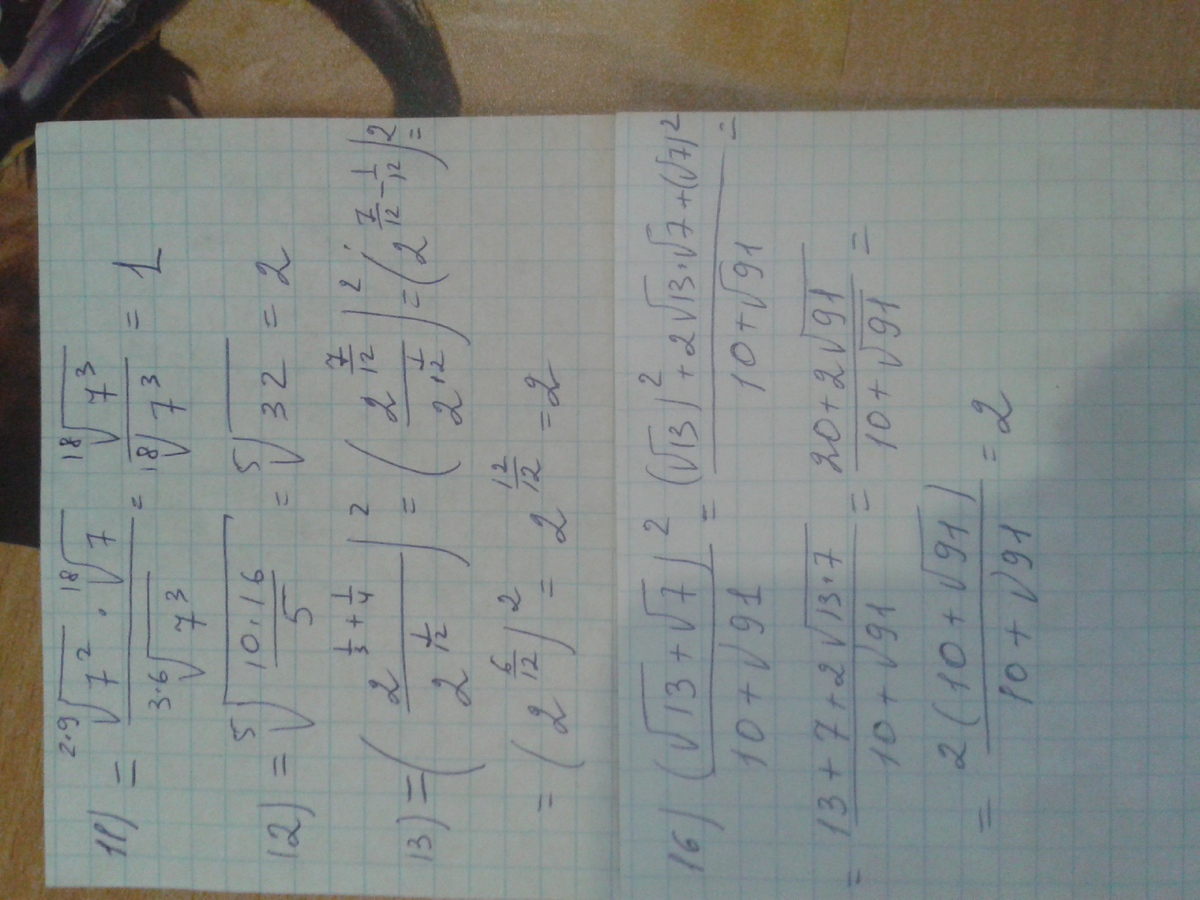 11) = (\sqrt[2·9]{7^2} · \sqrt[18]{7}) / \sqrt[3·6]{7^3} = \sqrt[18]{7^3} / \sqrt[18]{7^3} = 1
12) = \sqrt[5]{10·16 / 5} = \sqrt[5]{32} = 2
13) = (2^{1/3 + 1/4} / 2^{1/12})^2 = (2^{7/12} / 2^{1/12})^2 = (2^{7/12 - 1/12})^2 =
= (2^{6/12})^2 = 2^{12/12} = 2
16) (\sqrt{13} + \sqrt{7})^2 / (10 + \sqrt{91}) = ((\sqrt{13})^2 + 2\sqrt{13}·\sqrt{7} + (\sqrt{7})^2) / (10 + \sqrt{91}) =
= (13 + 7 + 2\sqrt{13·7}) / (10 + \sqrt{91}) = (20 + 2\sqrt{91}) / (10 + \sqrt{91}) =
= 2(10 + \sqrt{91}) / (10 + \sqrt{91}) = 2